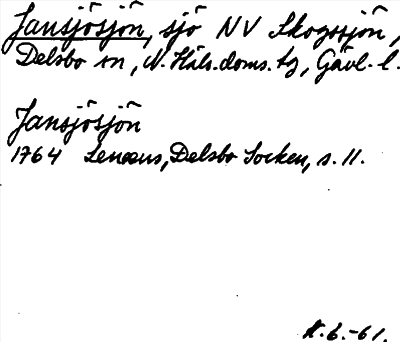 Jansjösjön, sjö NV Skogssjön,
Delsbo sn, N. Häls. doms. tg, Gävl. l.
Jansjösjön
1764 Lenæus, Delsbo Socken, s. 11.
6.-61.